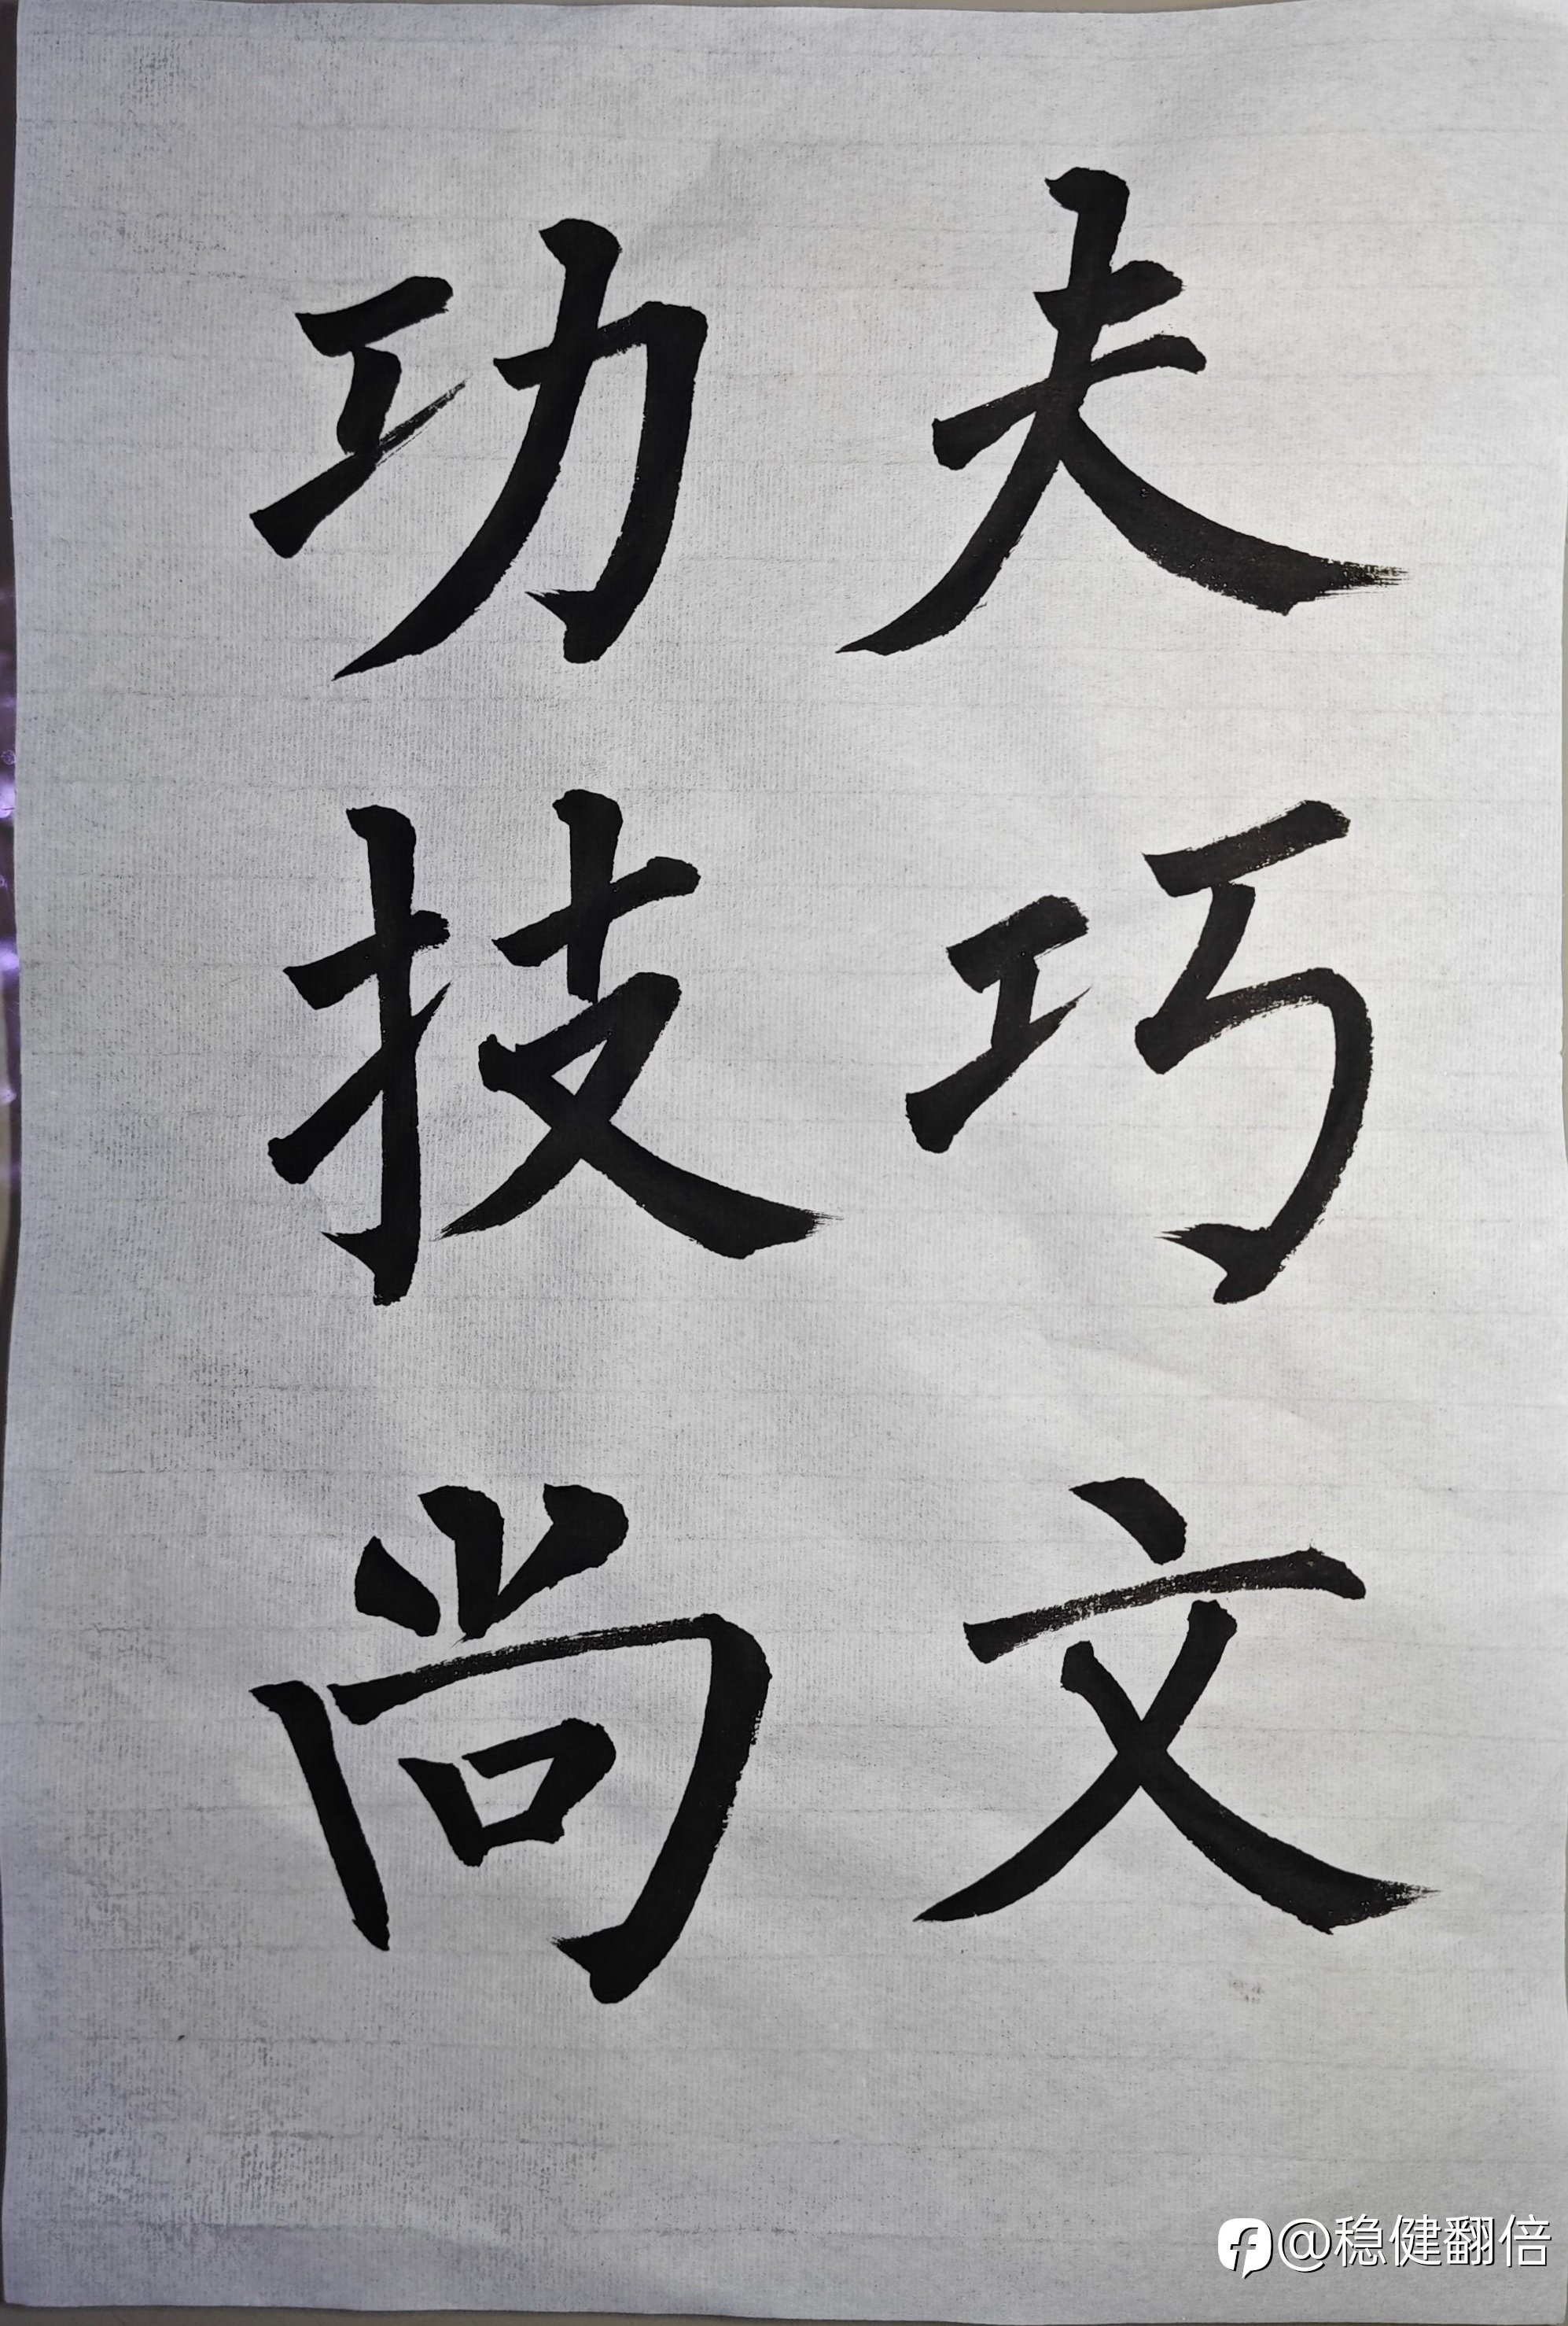 功夫
技巧
尚文
@稳健翻倍